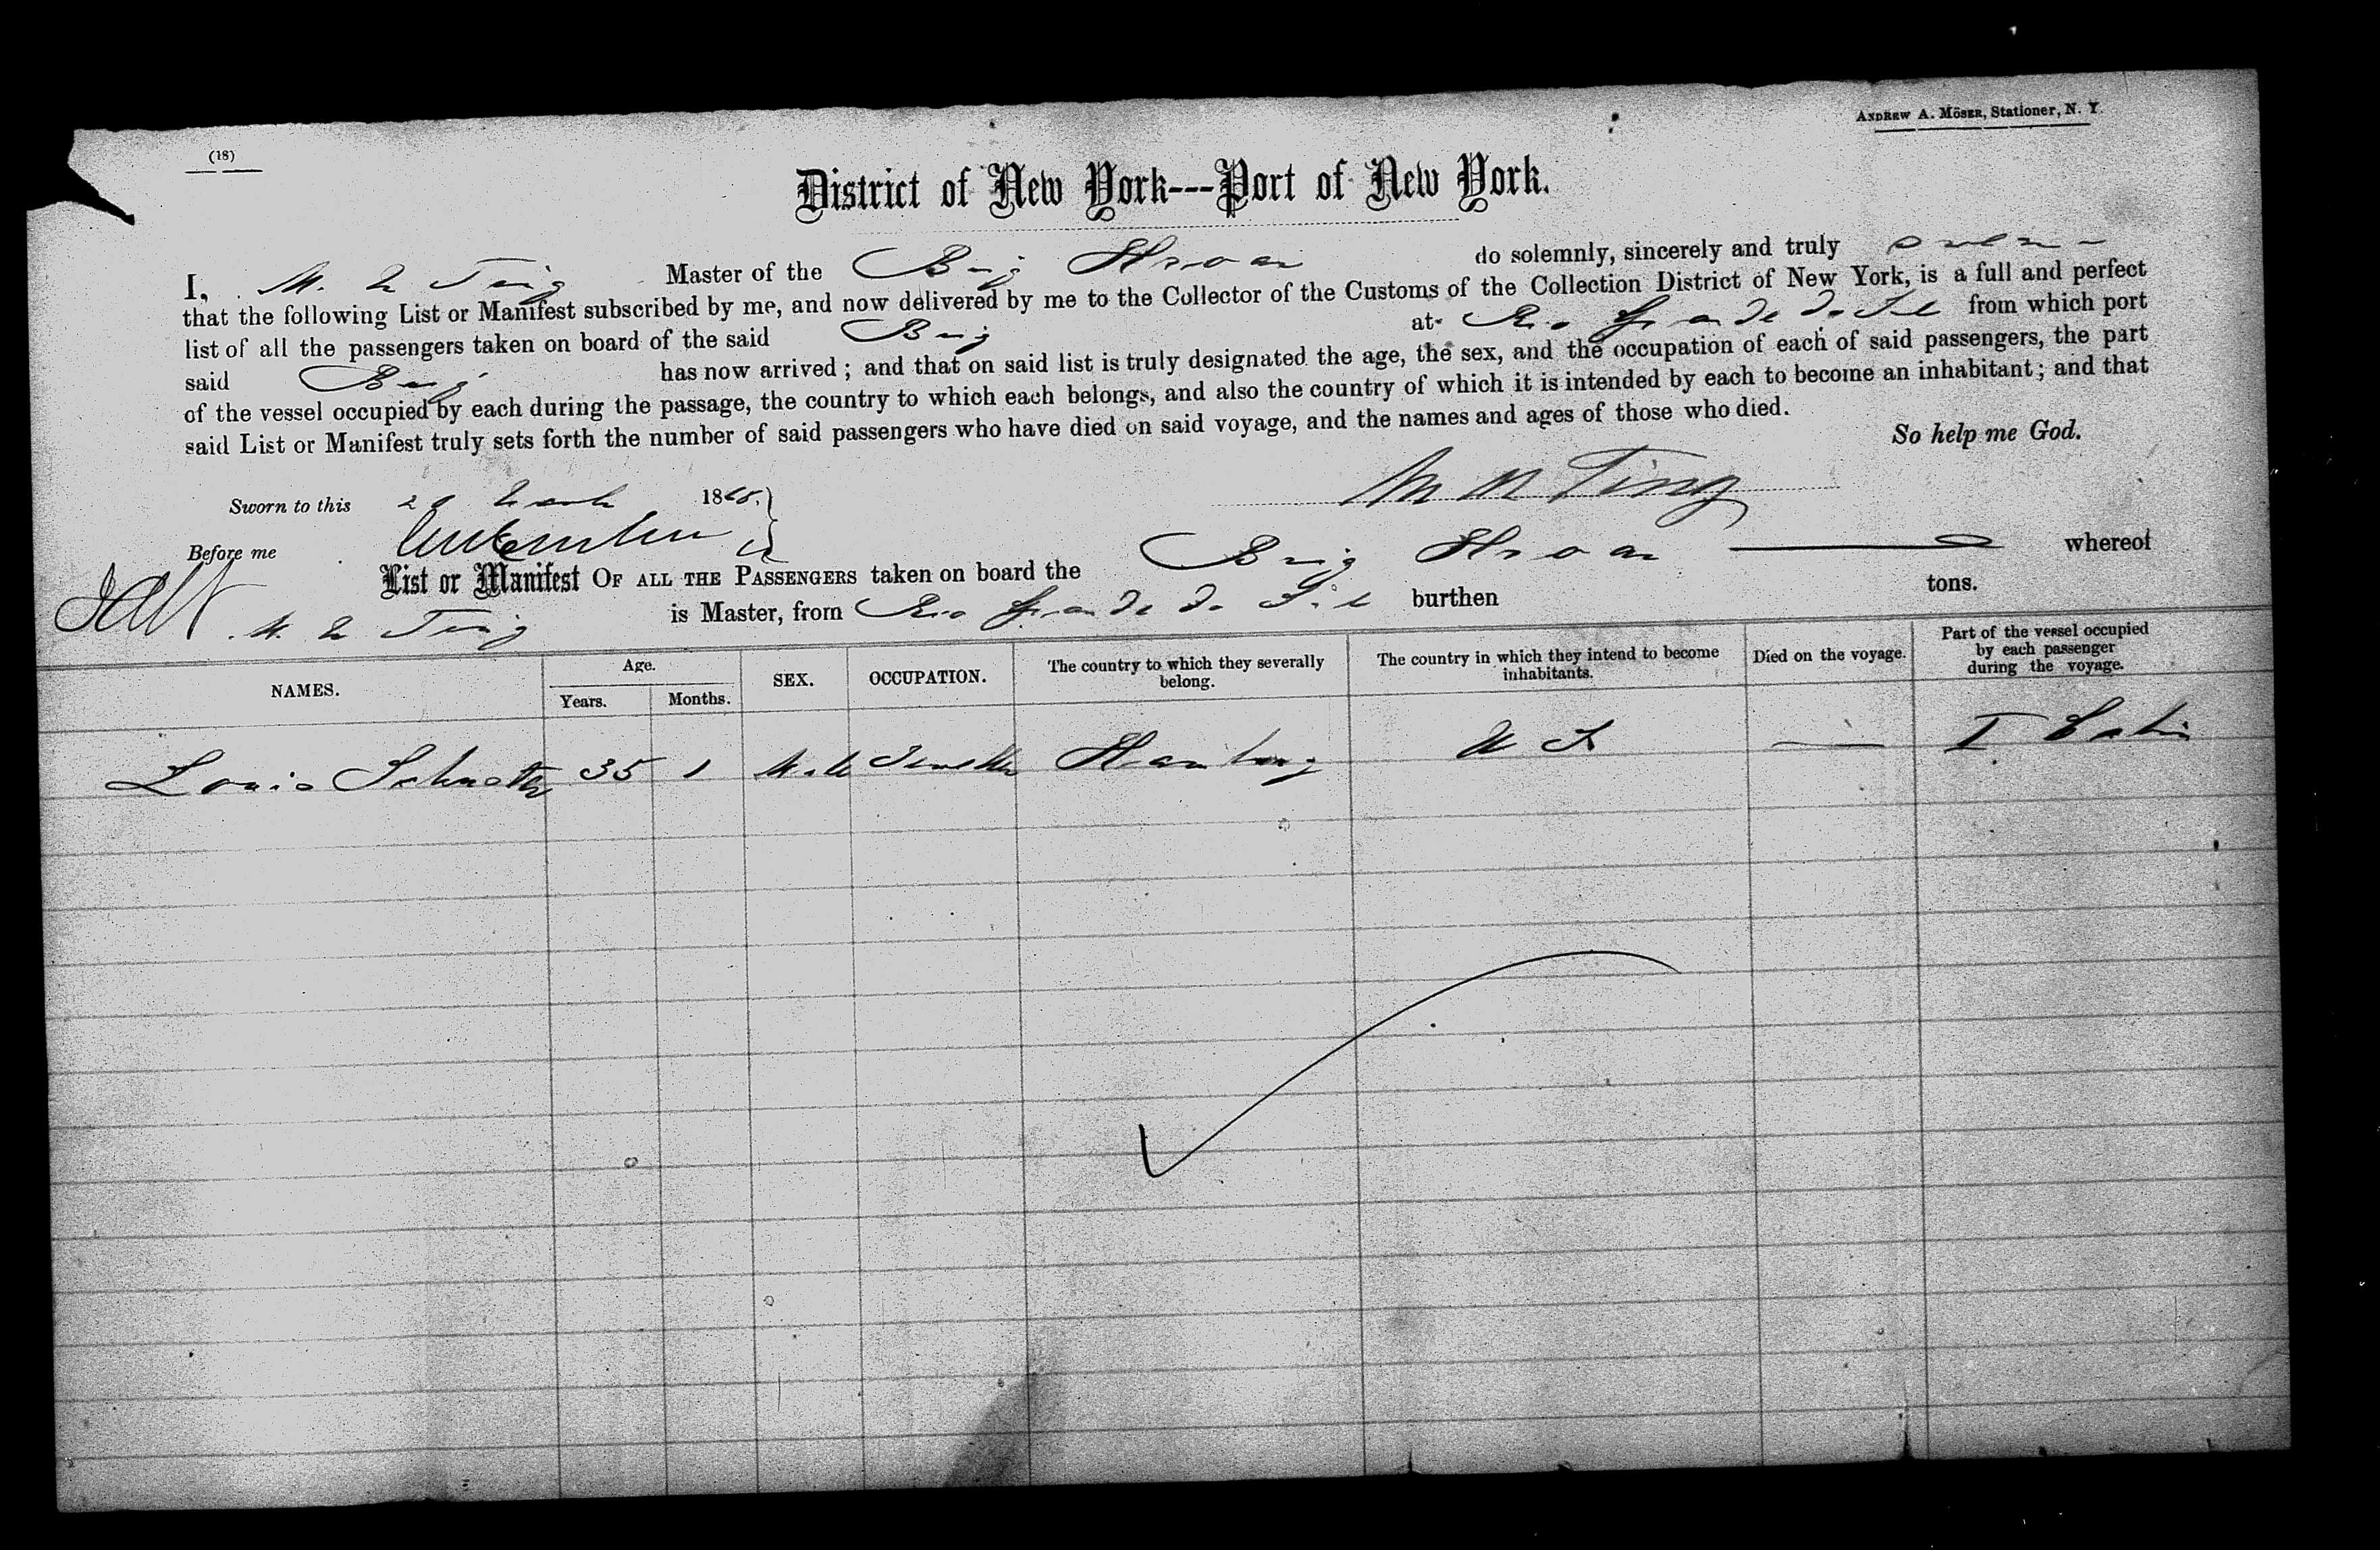 ANDREW A. MÖSER, Stationer, N. Y.
(18)
District of New York---Port of New York.
I, M. Ting Master of the Brig do solemnly, sincerely and truly
that the following List or Manifest subscribed by me, and now delivered by me to the Collector of the Customs of the Collection District of New York, is a full and perfect
list of all the passengers taken on board of the said Brig at Rio Grande do Sul from which port
said Brig has now arrived; and that on said list is truly designated the age, the sex, and the occupation of each of said passengers, the part
of the vessel occupied by each during the passage, the country to which each belongs, and also the country of which it is intended by each to become an inhabitant; and that
said List or Manifest truly sets forth the number of said passengers who have died on said voyage, and the names and ages of those who died.
So help me God.
Sworn to this 1868. Ting
Before me
List or Manifest OF ALL THE PASSENGERS taken on board the Brig whereof
M. Ting is Master, from Rio Grande do Sul burthen tons.
NAMES. Age. Years. Months. SEX. OCCUPATION. The country to which they severally belong. The country in which they intend to become inhabitants. Died on the voyage. Part of the vessel occupied by each passenger during the voyage.
Louis Schuster 35 1 Male Jeweller Hamburg U S — I Cabin